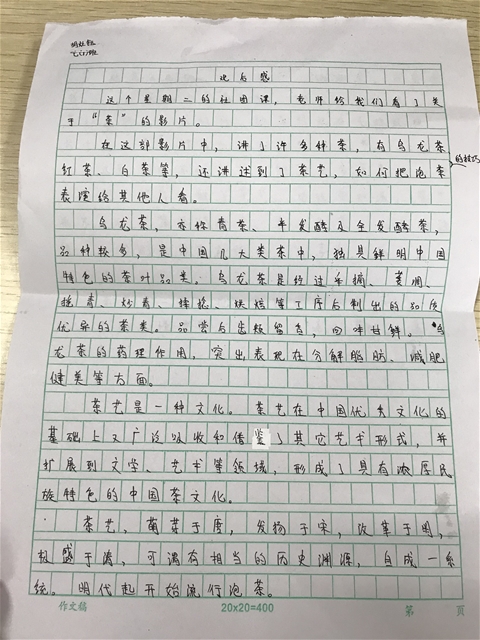 观后感
这个星期二的社团课，老师给我们看了关
于“茶”的影片。
在这部影片中，讲了许多种茶，有乌龙茶
红茶、白茶等，还讲述到了茶艺，如何把泡茶的技巧
表演给其他人看。
乌龙茶，亦称青茶、半发酵及全发酵茶，
品种较多，是中国几大类茶中，独具鲜明中国
特色的茶叶品类。乌龙茶是经过采摘、萎凋、
摇青、炒青、揉捻、烘焙等工序后制出的品质
优异的茶类。品尝后齿颊留香，回味甘鲜。乌
龙茶的药理作用，突出表现在分解脂肪、减肥
健美等方面。
茶艺是一种文化。茶艺在中国优秀文化的
基础上又广泛吸收和借鉴了其它艺术形式，并
扩展到文学、艺术等领域，形成了具有浓厚民
族特色的中国茶文化。
茶艺，萌芽于唐，发扬于宋，改革于明，
极盛于清，可谓有相当的历史渊源，自成一系
统。明代起开始流行泡茶。
作文稿 20×20=400 第 页